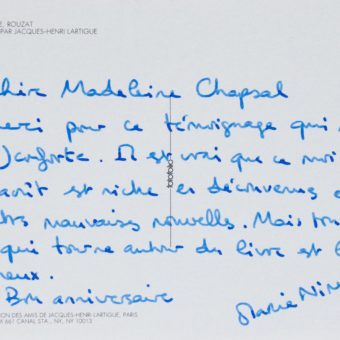 E, ROUZAT
PAR JACQUES-HENRI LARTIGUE
hère Madeleine Chapsal
erci pour ce témoignage qui
)conforte. Il est vrai que ce moi
août est riche en découvertes
mauvaises nouvelles. Mais tou
qui tourne autour du livre est
reux.
Bon anniversaire
Marie Nim
fotofolio
ION DES AMIS DE JACQUES-HENRI LARTIGUE, PARIS
X 661 CANAL STA., NY, NY 10013